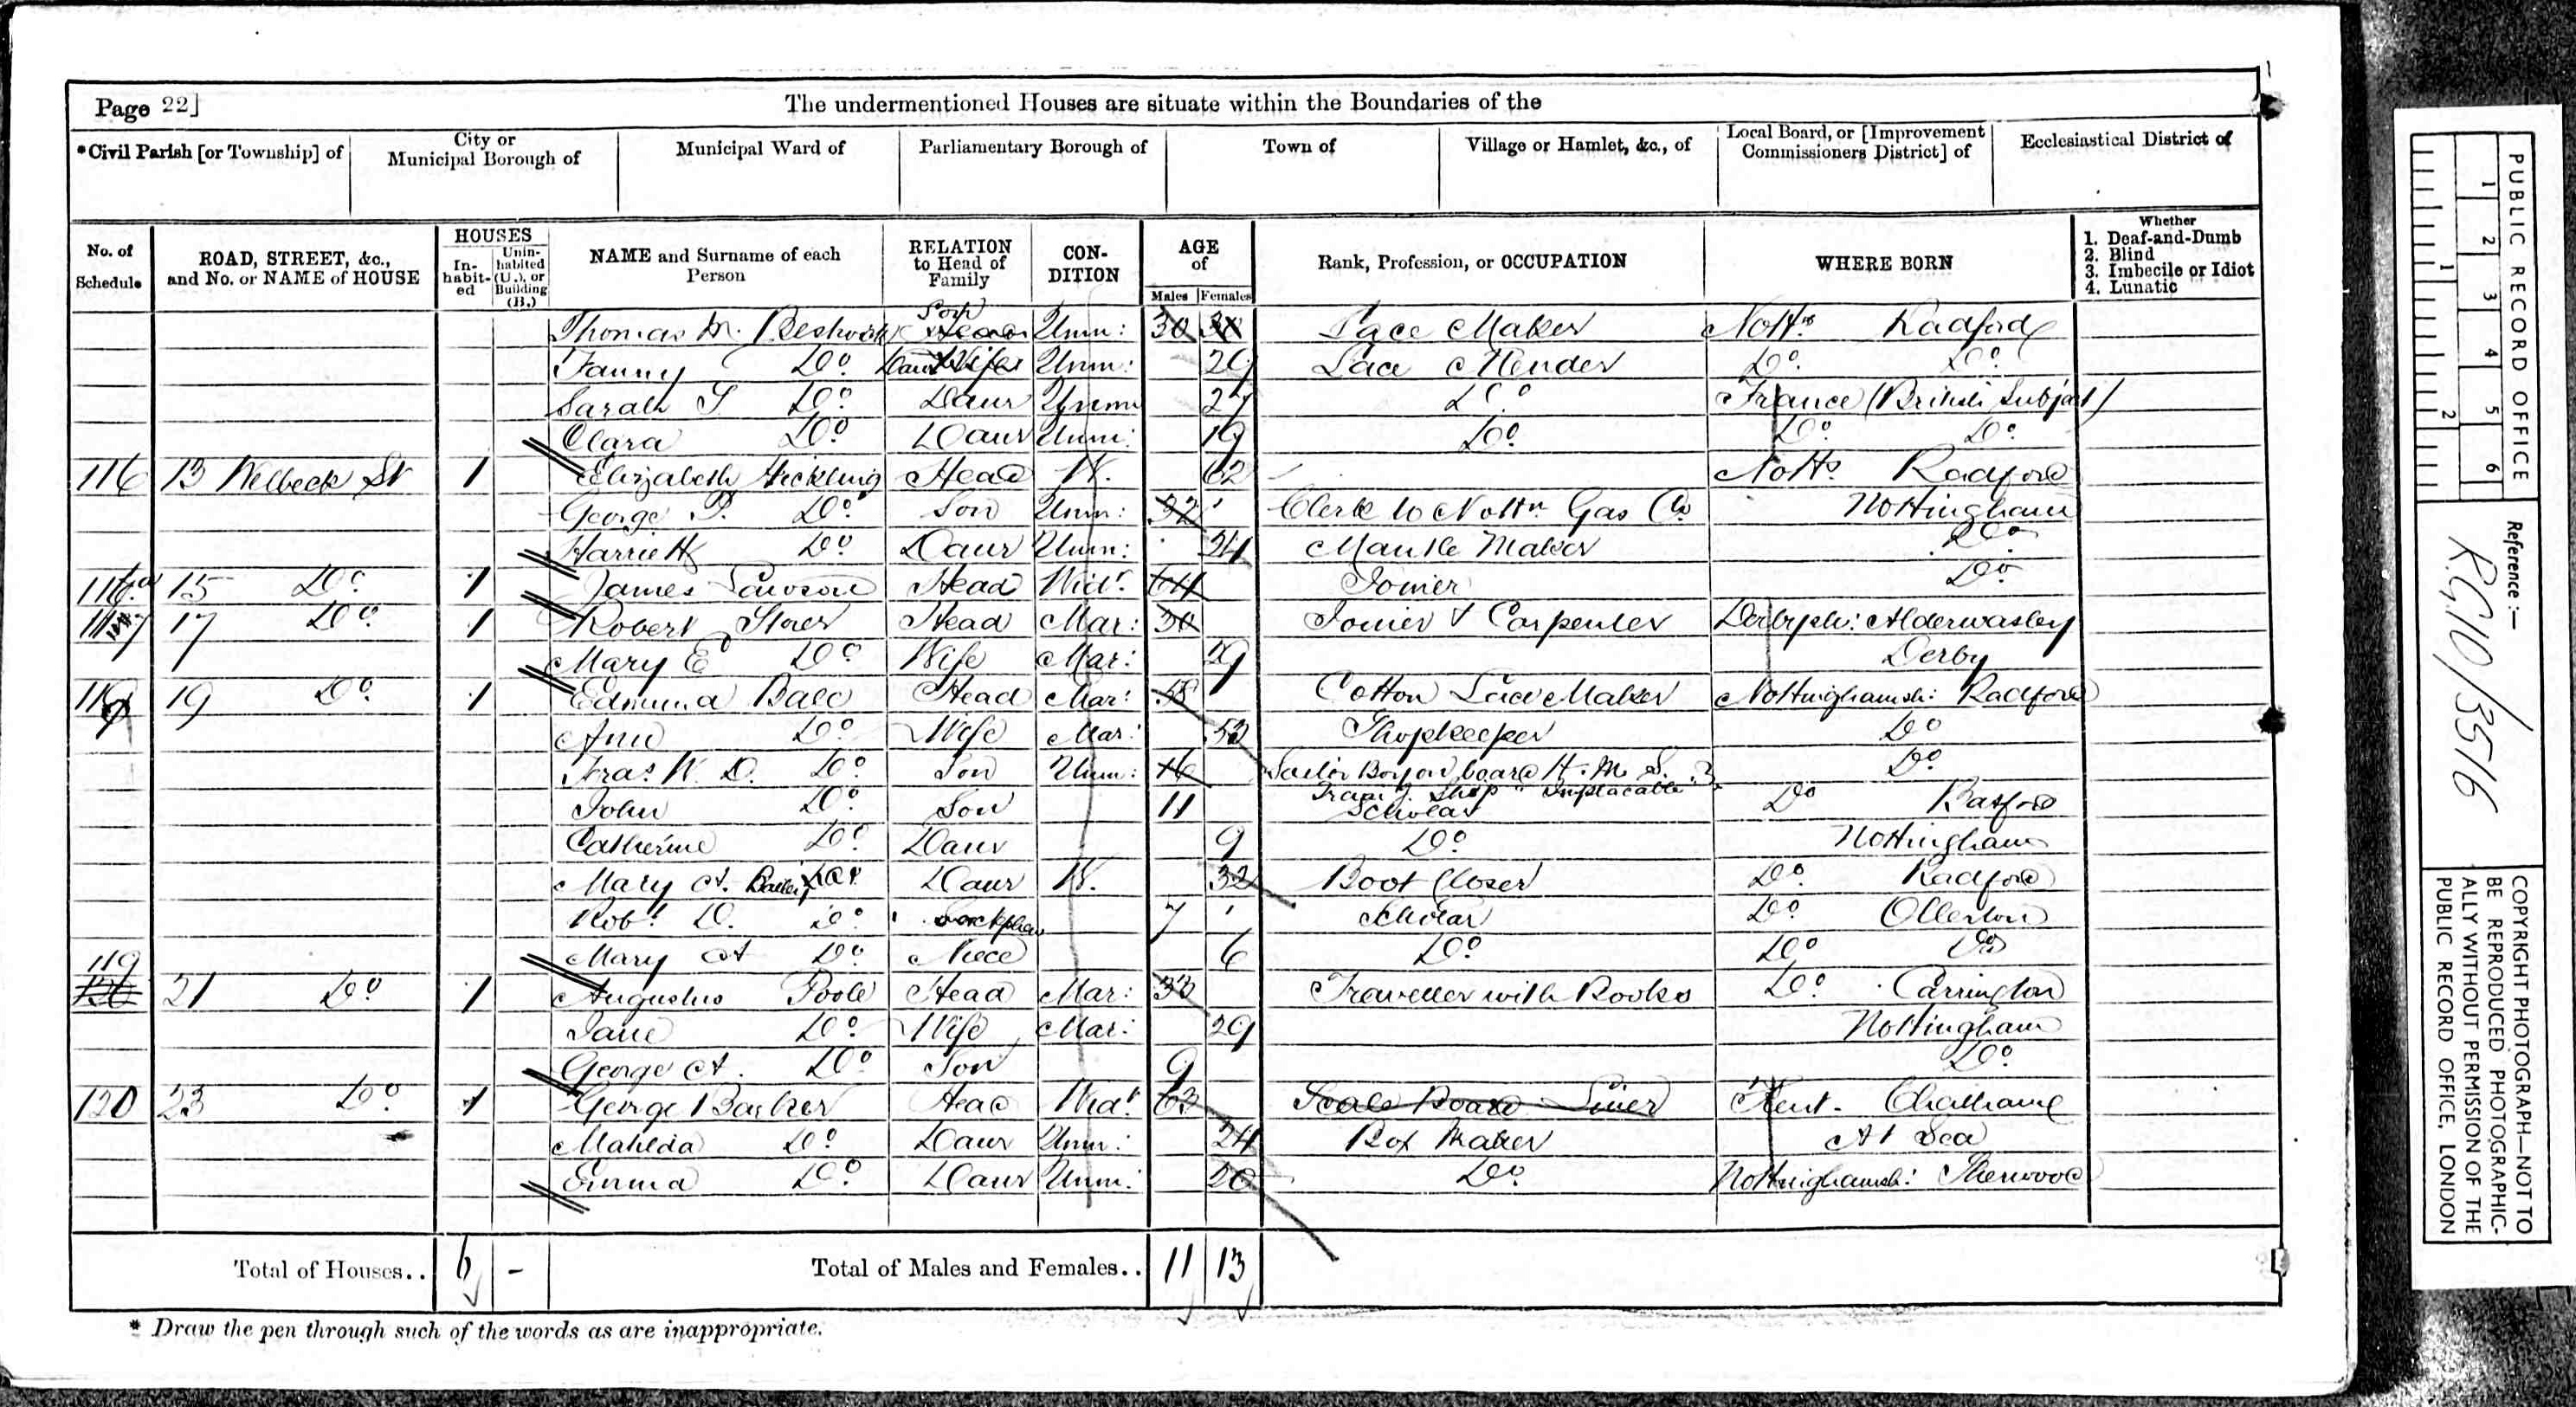 Page 22]
The undermentioned Houses are situate within the Boundaries of the
*Civil Parish [or Township] of
City or Municipal Borough of
Municipal Ward of
Parliamentary Borough of
Town of
Village or Hamlet, &c., of
Local Board, or [Improvement Commissioners District] of
Ecclesiastical District of
No. of Schedule
ROAD, STREET, &c., and No. or NAME of HOUSE
HOUSES
In-habit-ed
Unin-habited (U.), or Building (B.)
NAME and Surname of each Person
RELATION to Head of Family
CON-DITION
AGE of
Males Females
Rank, Profession, or OCCUPATION
WHERE BORN
Whether
1. Deaf-and-Dumb
2. Blind
3. Imbecile or Idiot
4. Lunatic
Thomas M. Son Unm: 30 Lace Maker Notts Radford
Fanny Do Daur Wife Unm: 29 Lace Mender Do Do
Sarah Do Daur Unm 27 Do France (British Subject)
Clara Do Daur Unm: 19 Do Do Do
116 13 Welbeck St 1 Elizabeth Hickling Head W. 62 Notts Radford
George P. Do Son Unm: 32 Clerk to Nottm Gas Co Nottingham
Harriett Do Daur Unm: 24 Mantle Maker Do
116a 15 Do 1 James Lawson Head Widr 64 Joiner Do
117 17 Do 1 Robert Storer Head Mar: 30 Joiner & Carpenter Derbysh: Alderwasley
Mary E Do Wife Mar: 29 Derby
19 Do 1 Edmund Ball Head Mar: 58 Cotton Lace Maker Nottinghamsh: Radford
Ann Do Wife Mar: 53 Shopkeeper Do
Fras W. D. Do Son Unm: 16 Sailor Boy on board H. M. S. Do
Traing Ship "Implacable"
John Do Son 11 Scholar Do Basford
Catherine Do Daur 9 Do Nottingham
Mary A. Bailey Do Daur W. 32 Boot Closer Do Radford
Robt D. Do 7 Scholar Do Ollerton
Mary A Do Niece 6 Do Do Do
119 21 Do 1 Augustus Poole Head Mar: 33 Traveller with Books Do Carrington
Jane Do Wife Mar: 29 Nottingham
George A. Do Son 9 Do
120 23 Do 1 George Barker Head Widr 63 Scale Board Kent - Chatham
Matilda Do Daur Unm: 24 Box Maker At Sea
Emma Do Daur Unm: 20 Do Nottinghamsh: Sherwood
Total of Houses.. 6 -
Total of Males and Females.. 11 13
* Draw the pen through such of the words as are inappropriate.
PUBLIC RECORD OFFICE
1 2 3 4 5 6
1 2
Reference:—
R.G.10/3516
COPYRIGHT PHOTOGRAPH—NOT TO
BE REPRODUCED PHOTOGRAPHIC-
ALLY WITHOUT PERMISSION OF THE
PUBLIC RECORD OFFICE, LONDON